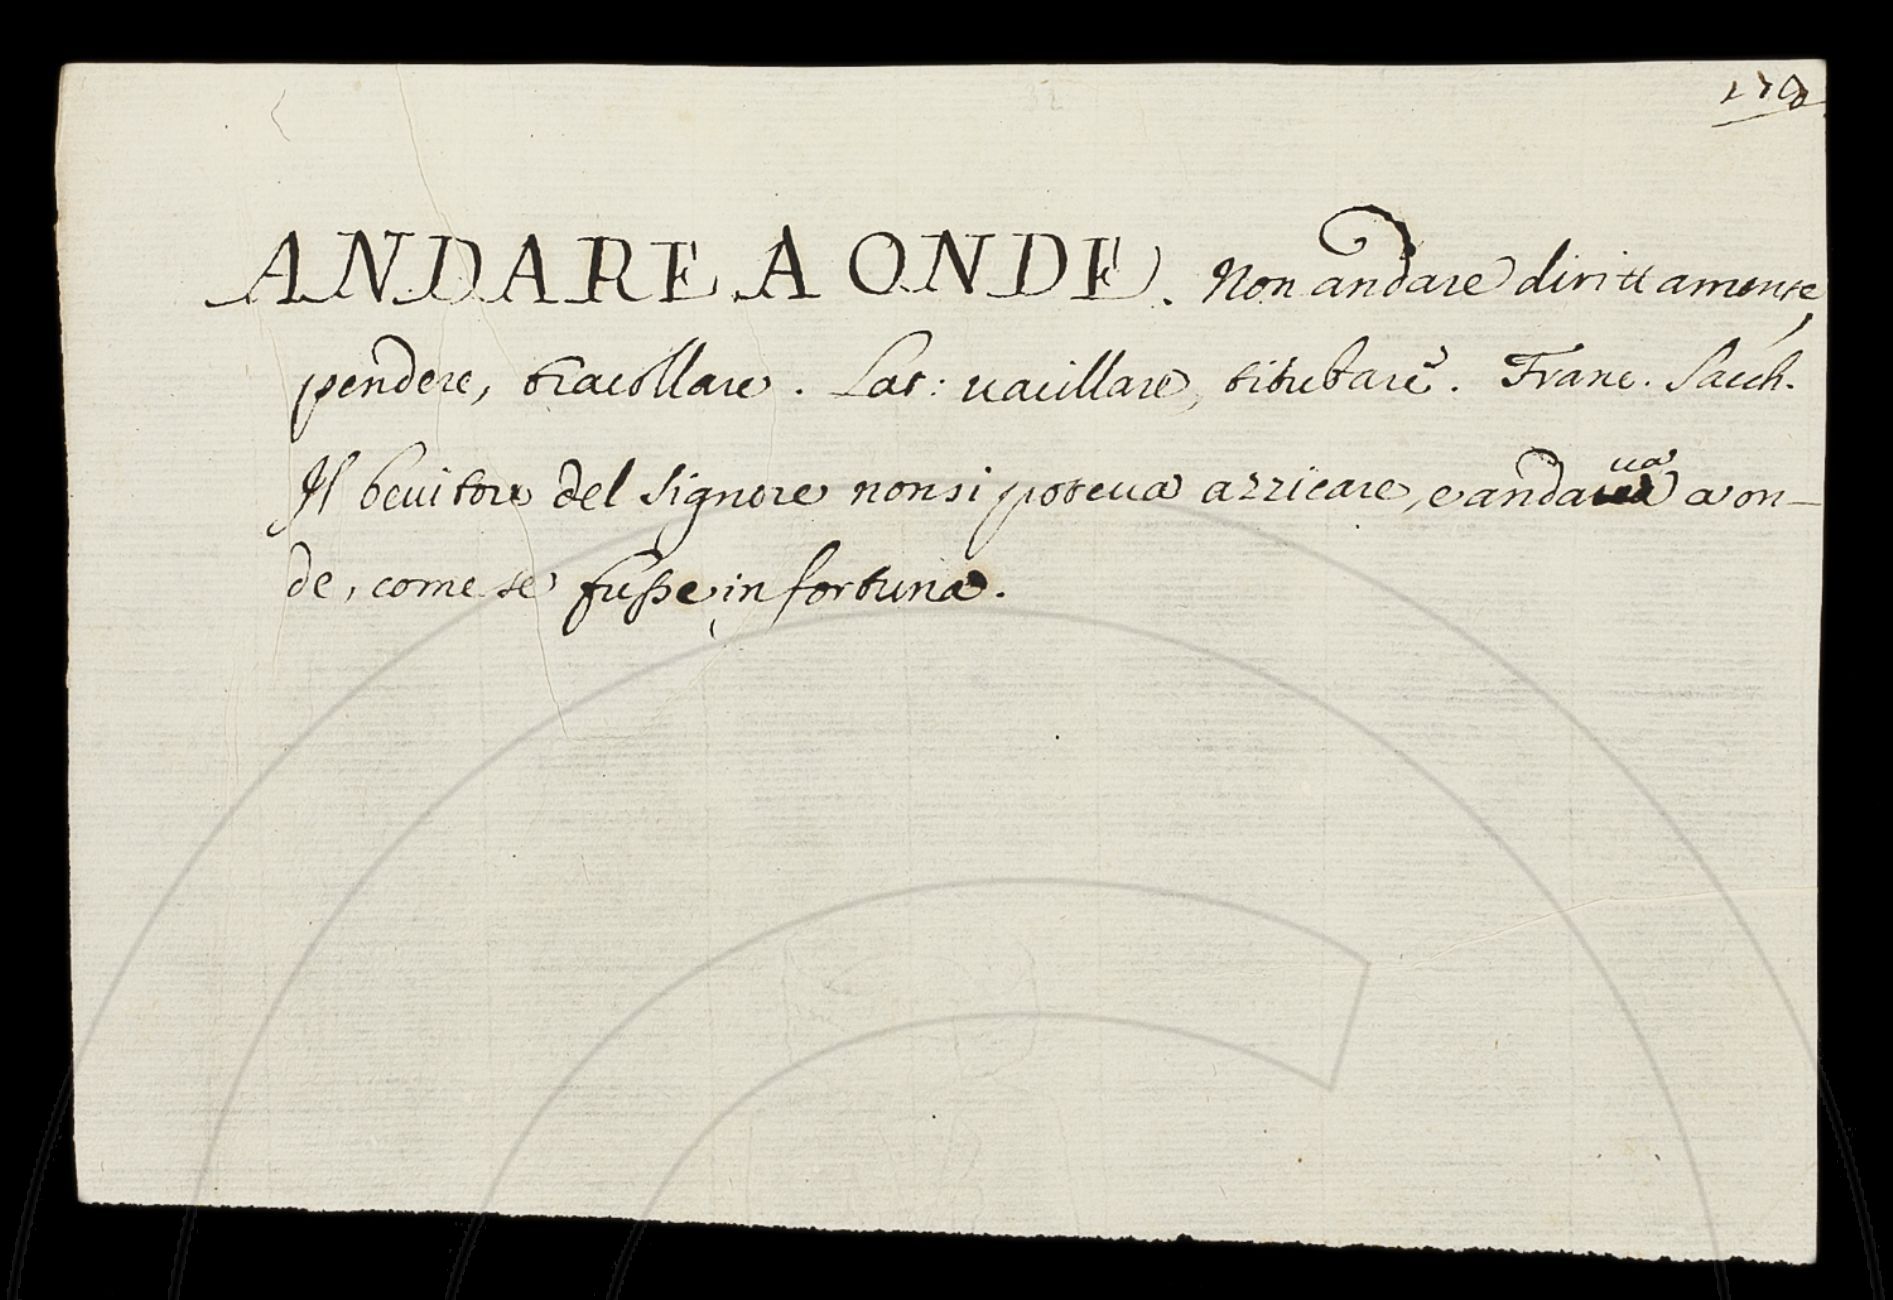 ANDARE A ONDE. Non andare dirittamente,
pendere, tracollare. Lat: uacillare, titubare. Franc. Sacch.
Il beuitore del Signore non si poteua azzicare, e andaua a on-
de, come se fusse in fortuna.